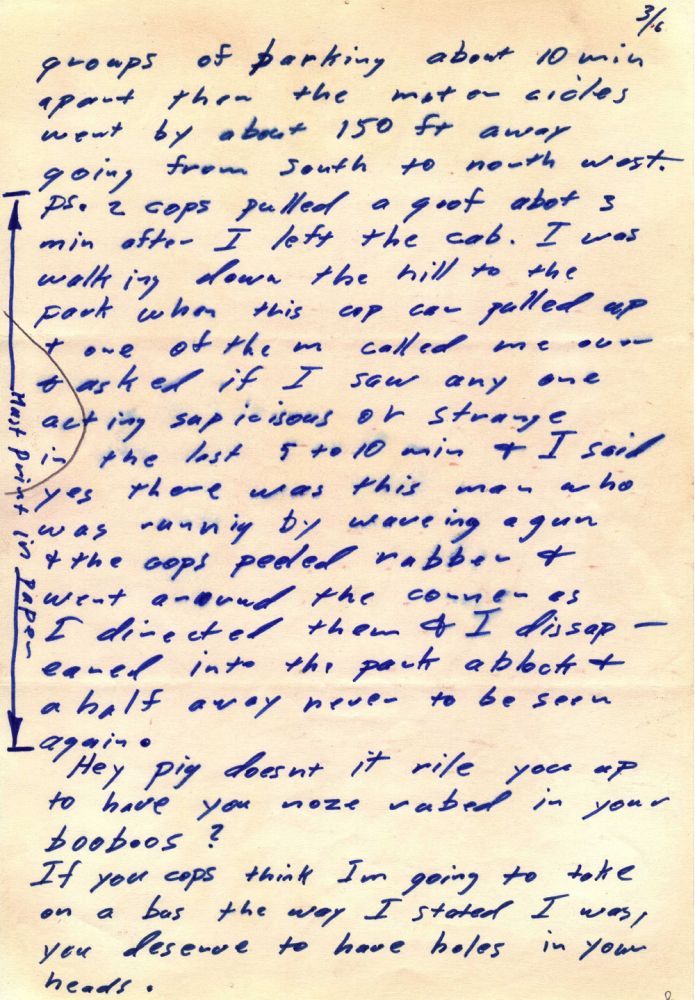 3/6
groups of barking about 10 min
apart then the motor cicles
went by about 150 ft away
going from south to north west.
ps. 2 cops pulled a goof abot 3
min after I left the cab. I was
walking down the hill to the
park when this cop car pulled up
+ one of them called me over
+ asked if I saw any one
acting sapicisous or strange
in the last 5 to 10 min + I said
yes there was this man who
was runnig by waveing a gun
+ the cops peeled rubber +
went around the corner as
I directed them + I dissap—
eared into the park a block +
a half away never to be seen
again.
Must print in paper
Hey pig doesnt it rile you up
to have you noze rubed in your
booboos?
If you cops think Im going to take
on a bus the way I stated I was,
you deserve to have holes in your
heads.